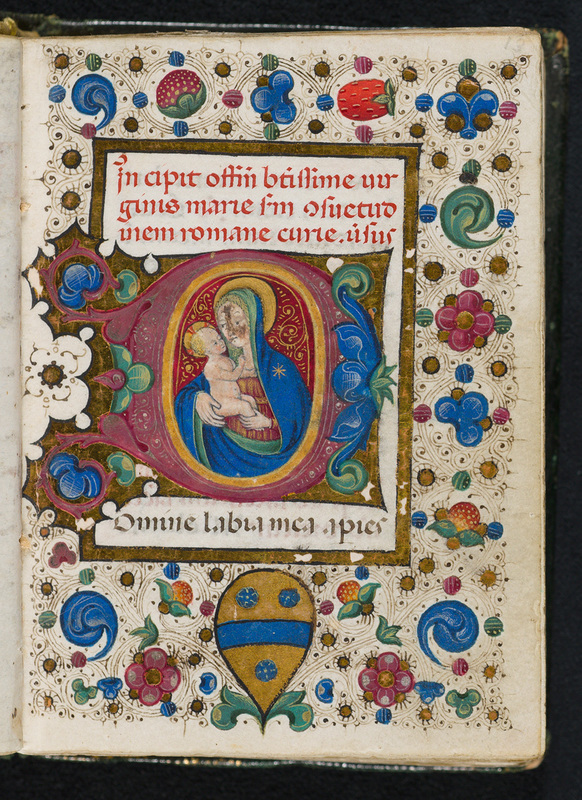 In cipit offin̄ btissime uir
ginis marie sm̄ ↄsuetud
inem romane curie. Usus
Domine labia mea apies